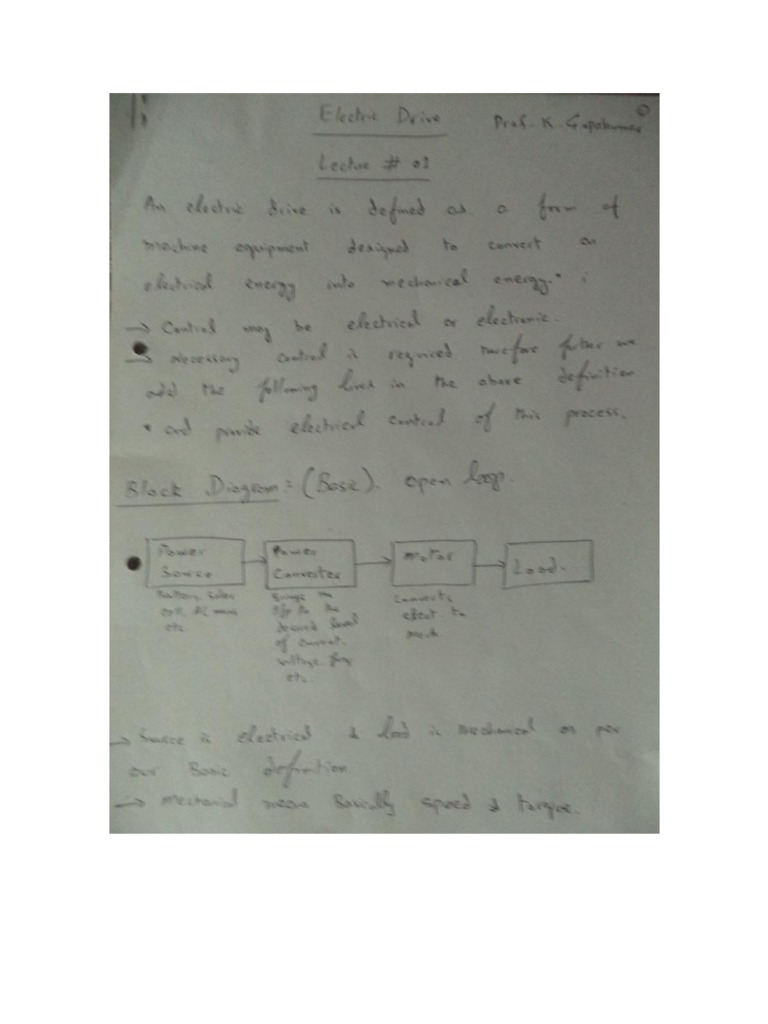 Electric Drive
Prof. K. Gopakumar
Lecture # 01
An electric drive is defined as a form of
machine equipment designed to convert an
electrical energy into mechanical energy.*
→ Control may be electrical or electronic.
→ necessary control is required therefore further we
add the following lines in the above definition
* and provide electrical control of this process.
Block Diagram: (Basic). open loop.
Power
Source
Power
Converter
Motor
Load.
Battery, Solar
AC
etc
Brings the
I/p to the
desired level
of current,
voltage, freq
etc.
Converts
elect to
mech
→ Source is electrical & load is mechanical as per
our Basic definition.
→ Mechanical means Basically speed & torque.